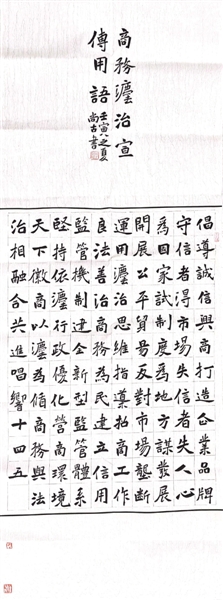 商務灋治宣
傳用語
壬寅之夏
尚古書
倡導誠信興商打造企業品牌
守信者得市場失信者失人心
為國家試制度為地方謀發展
開展公平貿易反對市場壟斷
運用灋治思維指導招商工作
良法善治商務為民建立信用
監管機制建全新型監管體系
堅持依灋行政優化營商環境
天下徽商以灋為傾商務與法
治相融合共進唱響十四五